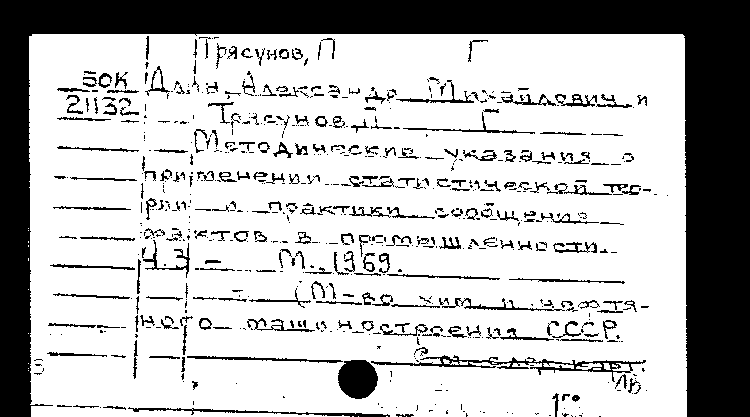 Трясунов, П Г
50К Длин, Александр Михайлович и
21132 Трясунов, П Г
Методические указания о
применении статистической тео-
рии и практики сообщения
фактов в промышленности.
Ч.3 - М., 1969.
- (М-во хим. и нефтя-
ного машиностроения СССР.
См. след. карт.